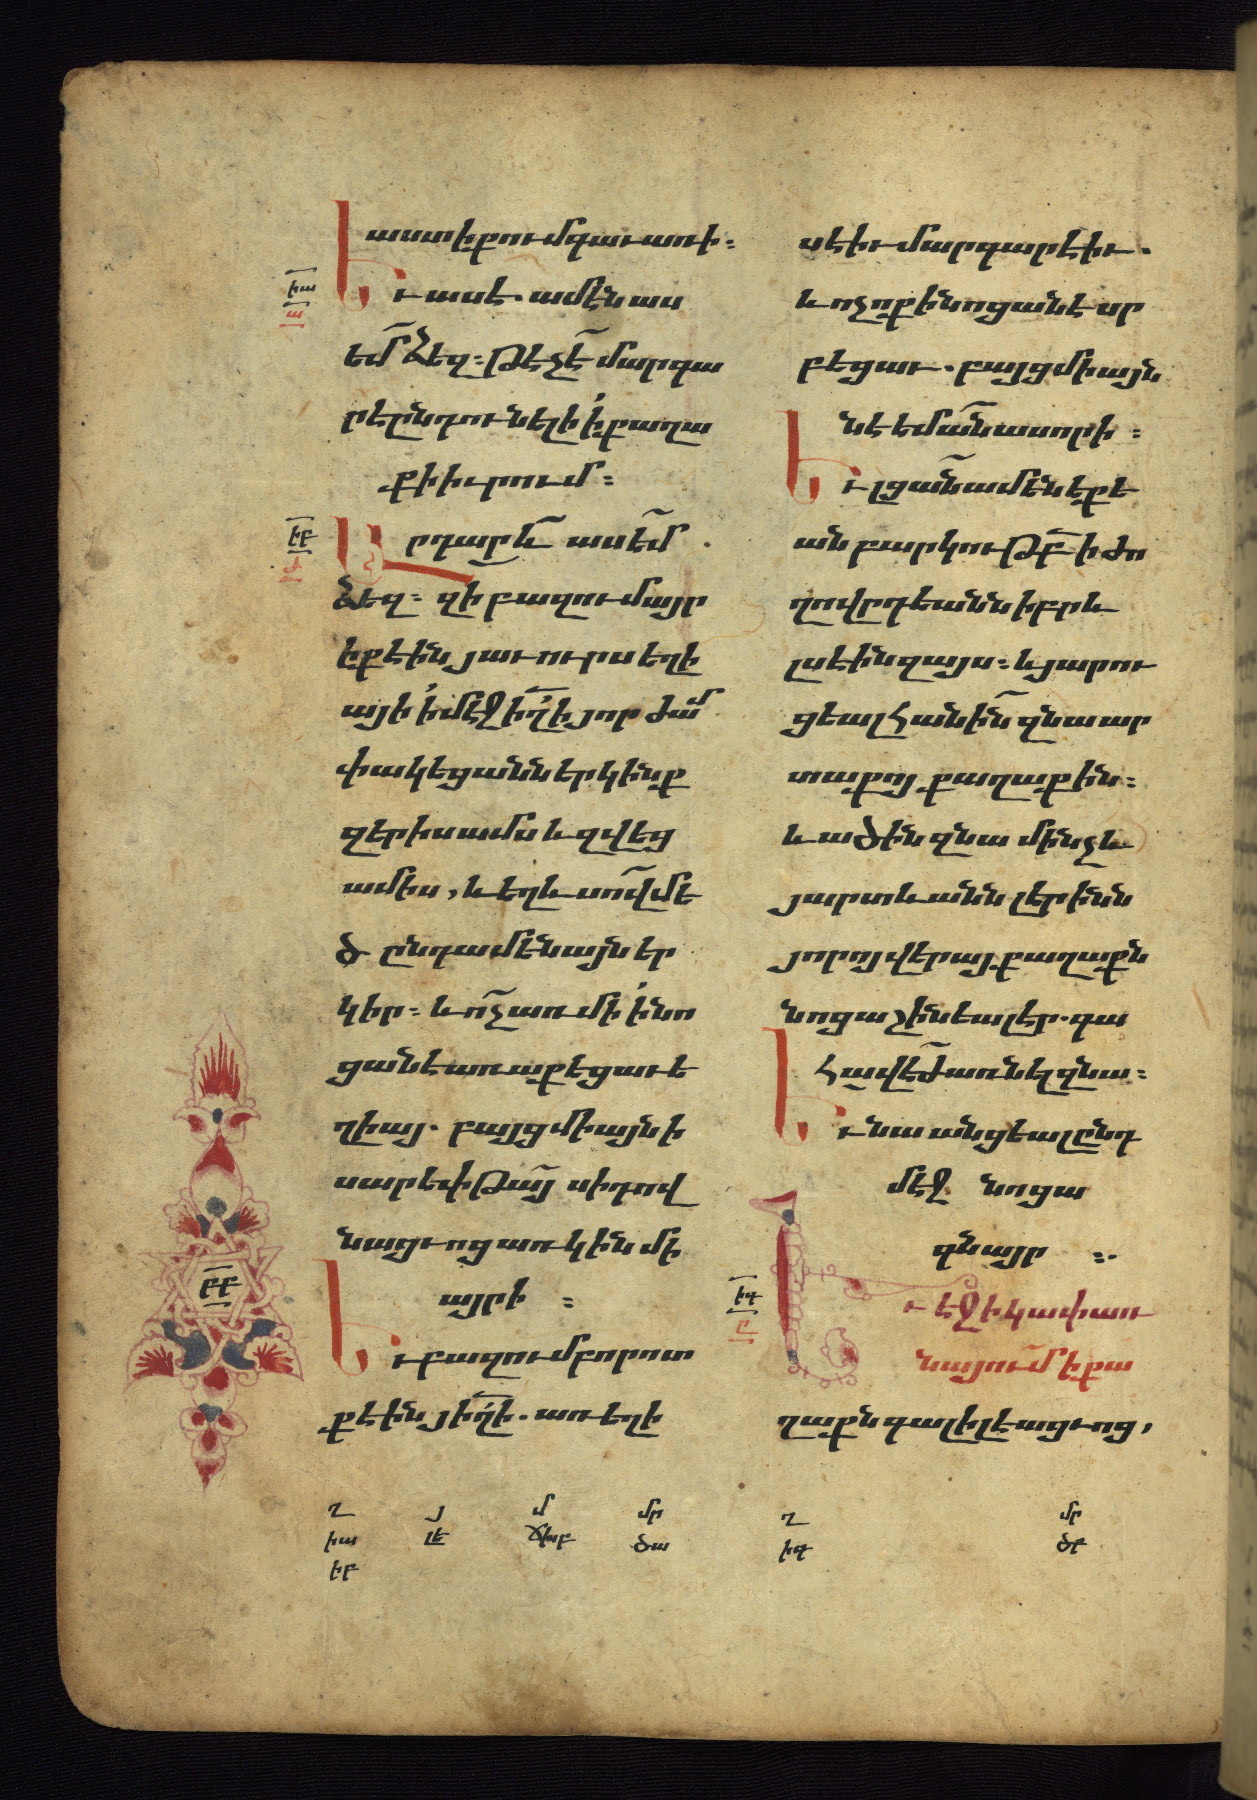 աստ ի քում գաւառի։
իա
ա
Եւ ասէ. ամէն աս
եմ ձեզ։ թէ չէ մարգա
րէ ընդունելի ի քաղա
քի իւրում։
իբ
ժ
Արդարև ասեմ.
ձեզ։ զի բազում այր
իք էին յաւուրս եղի
այի ի մէջ իղի յորժամ
փակեցան երկինք
զերիս ամս և զվեց
ամիս, և եղև սով մե
ծ ընդ ամենայն եր
կիր։ և ոչ առ մի ի նո
ցանէ առաքեցաւ ե
ղիայ. բայց միայն ի
սարեփթայ սիդով
նացւոց առ կին մի
այրի։
Եւ բազում բորոտ
ք էին յիղի. առ եղի
սէիւ մարգարէիւ.
և ոչ ոք ի նոցանէ սր
բեցաւ. բայց միայն
նէեման ասորի։
Եւ լցան ամենեքե
ան բարկութբ ի ժո
ղովրդեանն իբրև
լսէին զայս։ և յարու
ցեալ հանին զնա ար
տաքոյ քաղաքին։
և ածին զնա մինչև
յարտևանն լերինն
յորոյ վերայ քաղաքն
նոցա շինեալ էր. գա
հավէժ առնել զնա։
Եւ նա անցեալ ընդ
մէջ նոցա
գնայր ։.
իգ
ը
Եւ էջ ի կափառ
նայում ի քա
ղաքն գալիլէացւոց,
ղ յ մ մր
իա լէ ճխբ ծա
իբ
ղ մր
իգ ծբ